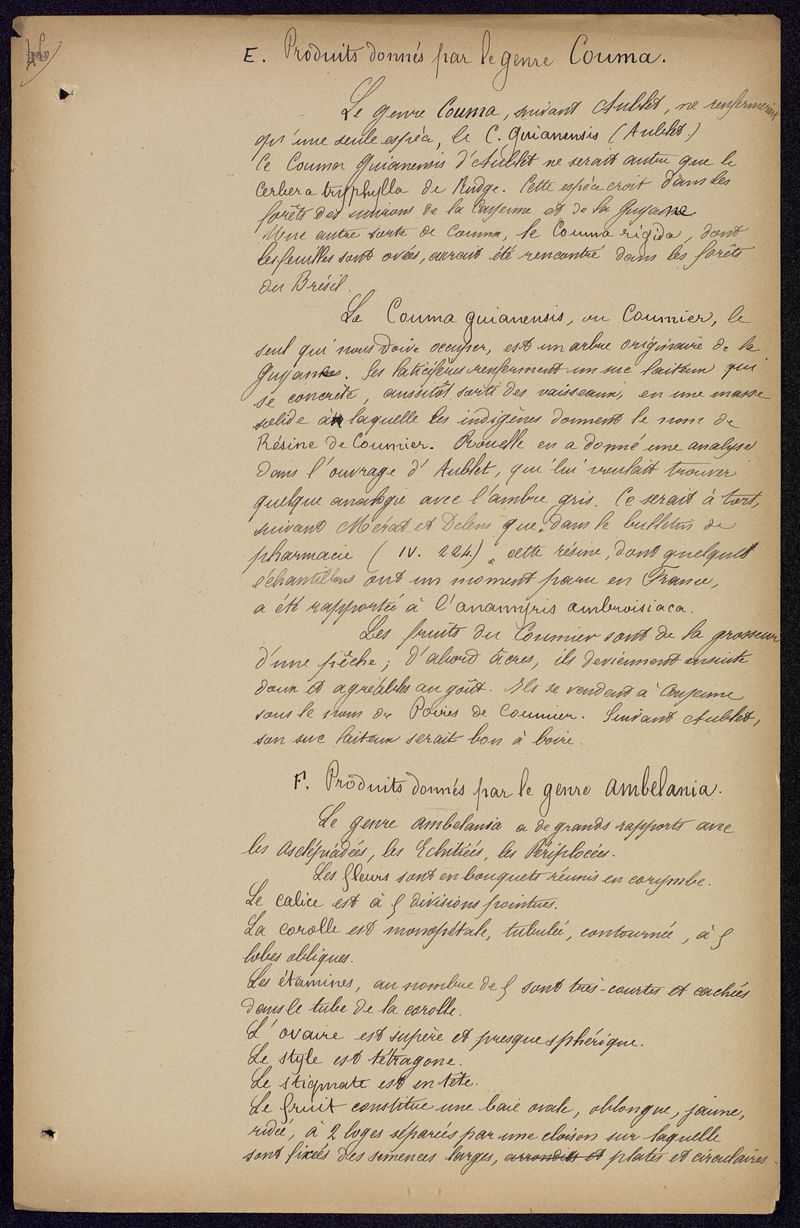 E. Produits donnés par le genre Couma.
Le genre Couma, suivant Aublet, ne renfermerait
qu'une seule espèce, le C. guianensis (Aublet.)
Ce Couma Guianensis d'Aublet ne serait autre que le
Cerbera tryphylla de Rudge. Cette espèce croit dans les
forêts des environs de la Cayenne et de la Guyane
Une autre sorte de Couma, le Couma rigida, dont
les feuilles sont ovées, aurait été rencontré dans les forêts
du Brésil.
Le Couma guianensis, ou Coumier, le
seul qui nous doive occuper, est un arbre originaire de la
Guyane. Ses laticifères renferment un suc laiteux qui
se concrète, aussitôt sorti des vaisseaux, en une masse
solide à laquelle les indigènes donnent le nom de
Résine de Coumier. Rouelle en a donné une analyse
dans l'ouvrage d'Aublet, qui lui voulait trouver
quelque analogie avec l'ambre gris. Ce serait à tort,
suivant Mérat et Delens que, dans le bulletin de
pharmacie (IV. 224.), cette résine, dont quelques
échantillons ont un moment paru en France,
a été rapportée à l'anamyris ambroisiaca.
Les fruits du Coumier sont de la grosseur
d'une pêche; d'abord âcres, ils deviennent ensuite
doux et agréables au goût. Ils se vendent à Cayenne
sous le nom de Poires de Coumier. Suivant Aublet,
son suc laiteux serait bon à boire.
F. Produits donnés par le genre ambelania.
Le genre ambelania a de grands rapports avec
les Asclépiadées, les Echitiées, les Périplocées.
Les fleurs sont en bouquets réunis en corymbe.
Le calice est à 5 divisions pointues.
La corolle est monopétale, tubulée, contournée, à 5
lobes obliques.
Les étamines, au nombre de 5 sont très-courtes et cachées
dans le tube de la corolle.
L'ovaire est supère et presque sphérique.
Le style est tétragone.
Le stigmate est en tête.
Le fruit constitue une baie ovale, oblongue, jaune,
ridée, à 2 loges séparées par une cloison sur laquelle
sont fixées des semences larges, arrondies et plates et circulaires.